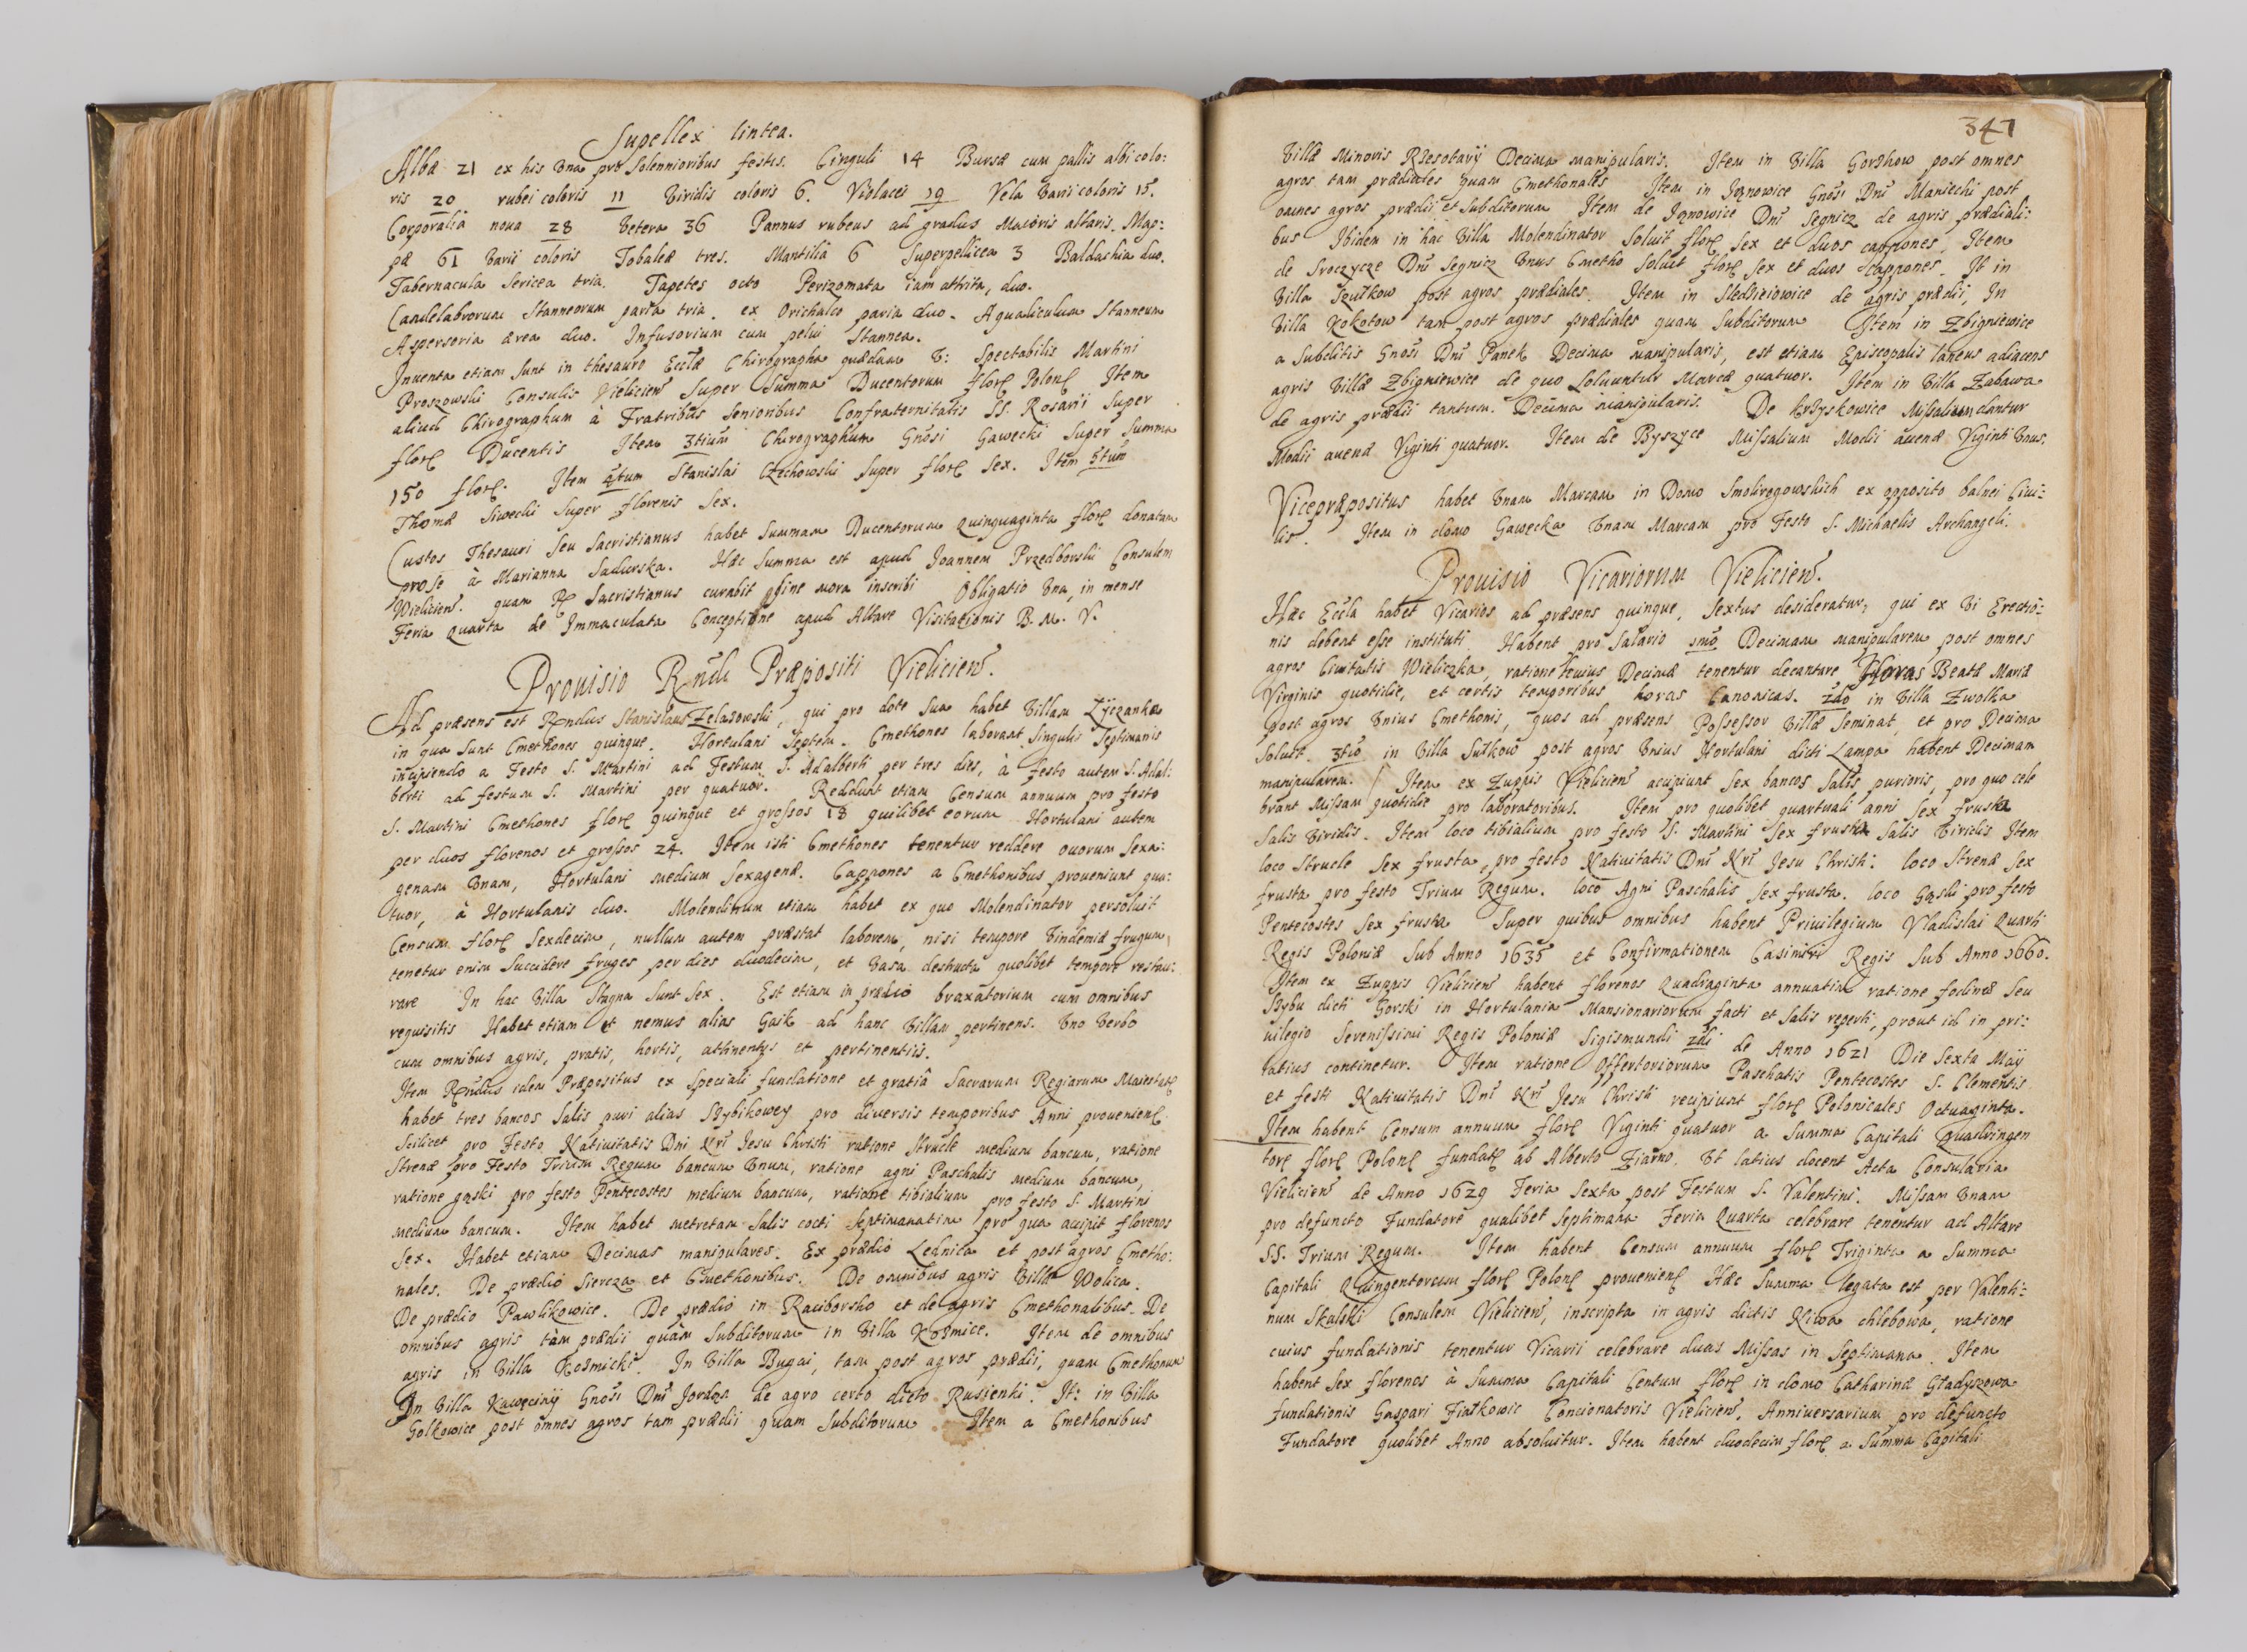 Supellex lintea.
Albæ 21 ex his vna pro Solennioribus festis. Cinguli 14 Bursæ cum pallis albi colo:
ris 20 rubei coloris 11 Viridis coloris 6. Violacei 19 Vela Varii coloris 15.
Corporalia noua 28 Vetera 36 Pannus rubeus ad gradus Maioris altaris. Map:
pæ 61 Varii coloris Tobaleæ tres. Mantilia 6 Superpellicea 3 Baldachia duo.
Tabernacula Sericea tria. Tapetes octo Perizomata iam attrita, duo.
Candelabrorum Stanneorum paria tria. ex Orichalco paria duo. Aqualiculum Stanneum
Asperseria ærea duo. Infusorium cum pelui Stannea.
Inuenta etiam Sunt in thesauro Eccłæ Chirographa quædam V: Spectabilis Martini
Proszowski Consulis Vielicień Super Summa Ducentorum flor Polon Item
aliud Chirographum à Fratribus Senioribus Confraternitatis SS. Rosarii Super
flor Ducentis Item 3tium Chirographum Gnosi Gawecki Super Summa
150 flor. Item 4tum Stanislai Czechowski Super flor Sex. Item 5tum
Thomæ Siwecki Super florenis Sex.
Custos Thesauri Seu Sacristianus habet Summam Ducentorum Quinquaginta flor donatam
pro se à Marianna Sadurska. Hæc Summa est apud Joannem Przedborski Consulem
Wielicień. quam R Sacristianus curabit sine mora inscribi Obligatio Vna, in mense
Feria Quarta de Immaculata Conceptione apud Altare Visitationis B. M. V.
Prouisio Rndi Præpositi Vielicień.
Ad præsens est Rndus Stanislaus Zelazowski, qui pro dote Sua habet Villam Lyczanka
in qua Sunt Cmethones quinque. Hortulani Septem. Cmethones laborant Singulis Septimanis
incipiendo a Festo S. Martini ad Festum S. Adalberti per tres dies, à festo autem S. Adal:
berti ad festum S. Martini per quatuor. Reddunt etiam Censum annuum pro festo
S. Martini Cmethones flor quinque et grossos 18 quilibet eorum Hortulani autem
per duos florenos et grossos 24. Item isti Cmethones tenentur reddere ouorum Sexa:
genam Vnam, Hortulani medium Sexagenæ. Cappones a Cmethonibus proueniunt qua:
tuor, à Hortulanis duo. Molendinum etiam habet ex quo Molendinator persoluit
Censum flor Sexdecim, nullum autem præstat laborem, nisi tempore Vindemiæ frugum,
tenetur enim Succidere fruges per dies duodecim, et Vasa destructa quolibet tempore restau:
rare In hac Villa Stagna Sunt Sex. Est etiam in prædio braxatorium cum omnibus
requisitis Habet etiam et nemus alias Gaik ad hanc Villam pertinens. Vno Verbo
cum omnibus agris, pratis, hortis, attinentys et pertinentiis.
Item Rndus idem Præpositus ex Speciali fundatione et gratiâ Sacrarum Regiarum Maiestat
habet tres bancos Salis puri alias Szybikowey pro diuersis temporibus Anni prouenien.
Scilicet pro Festo Natiuitatis Dni Nri Jesu Christi ratione Strucle medium bancum, ratione
Strenæ pro Festo Trium Regum bancum Vnum, ratione agni Paschalis medium bancum,
ratione gąski pro festo Pentecostes medium bancum, ratione tibialium pro festo S. Martini
medium bancum. Item habet metretam Salis cocti Septimanatim pro qua accipit florenos
Sex. Habet etiam Decimas manipulares. Ex prædio Lednica et post agros Cmetho:
nales. De prædio Siercza et Cmethonibus. De omnibus agris Villæ Wolica.
De prædio Pawlikowice. De prædio in Raciborsko et de agris Cmethonalibus. De
omnibus agris tàm prædii quàm Subditorum in Villa Kozmice. Item de omnibus
agris in Villa Kozmicki. In Villa Bugai, tam post agros prædii, quam Cmethonum
In Villa Kawęciny Gnosi Dni Jordan de agro certo dicto Rusienki. It: in Villa
Golkowice post omnes agros tam prædii quam Subditorum Item a Cmethonibus
347
Villæ Minoris Rzesotary Decima manipularis. Item in Villa Gorzkow post omnes
agros tam prædiales quam Cmethonales Item in Jeznowice Gnosi Dni Maniecki post
omnes agros prædii et Subditorum Item de Jeznowice Dni Segnicz de agris prædiali:
bus Ibidem in hac Villa Molendinator Soluit flor Sex et duos cappones, Item
de Sroczycze Dni Segnicz Vnus Cmetho Soluit flor Sex et duos cappones. It in
Villa Szułkow post agros prædiales. Item in Sledzieiowice de agris prædii, In
Villa Kokotow tam post agros prædiales quam Subditorum Item in Zbigniewice
a Subditis Gnosi Dni Panek Decima manipularis, est etiam Episcopalis laneus adiacens
agris Villæ Zbigniewice de quo Soluuntur Marcæ quatuor. Item in Villa Zabawa
de agris prædii tantum. Decima manipularis. De Krzyskowice Missalium dantur
Modii auenæ Viginti quatuor. Item de Byszyce Missalium Modii auenæ Viginti Vnus.
Vicepræpositus habet Vnam Marcam in Domo Smolirogowskich ex opposito balnei Ciui:
lis. Item in domo Gawęcka Vnam Marcam pro Festo S. Michaelis Archangeli.
Prouisio Vicariorum Vielicień.
Hæc Eccla habet Vicarios ad præsens quinque, Sextus desideratur, qui ex Vi Erectio:
nis debent esse instituti Habent pro Salario 1mo Decimam manipularem post omnes
agros Ciuitatis Wieliczka, ratione huius Decimæ tenentur decantare Horas Beatæ Mariæ
Virginis quotidie, et certis temporibus horas Canonicas. 2do in Villa Zwolka
post agros Vnius Cmethonis, quos ad præsens Possessor Villæ Seminat, et pro Decima
Soluit. 3tio in Villa Sułkow post agros Vnius Hortulani dicti Lampa habent Decimam
manipularem. Item ex Zuppis Vielicień accipiunt Sex bancos Salis purioris, pro quo cele
brant Missam quotidie pro laboratoribus. Item pro quolibet quartuali anni Sex frusta
Salis Viridis. Item loco tibialium pro festo S. Martini Sex frusta Salis Viridis Item
loco Strucle Sex frusta, pro festo Natiuitatis Dni Nri Jesu Christi: loco Strenæ Sex
frusta pro festo Trium Regum. loco Agni Paschalis Sex frusta. loco Gąski pro festo
Pentecostes Sex frusta Super quibus omnibus habent Priuilegium Vladislai Quarti
Regis Poloniæ Sub Anno 1635 et Confirmationem Casimiri Regis Sub Anno 1660.
Item ex Zuppis Vielicień habent florenos Quadraginta annuatim ratione fodinæ Seu
Szybu dicti Gorski in Hortulania Mansionariorum facti et Salis reperti, prout id in pri:
uilegio Serenissimi Regis Poloniæ Sigismundi 3tii de Anno 1621 Die Sexta Maij
latius continetur. Item ratione Offertoriorum Paschatis Pentecostes S. Clementis
et festi Natiuitatis Dni Nri Jesu Christi recipiunt flor Polonicales Octuaginta.
Item habent Censum annuum flor Viginti quatuor a Summa Capitali Quadringen
tor flor Polon fundat ab Alberto Ziarno. Vt latius docent Acta Consularia
Vielicień de Anno 1629 Feria Sexta post Festum S. Valentini. Missam Vnam
pro defuncto Fundatore qualibet Septimana Feria Quarta celebrare tenentur ad Altare
SS. Trium Regum. Item habent Censum annuum flor Triginta a Summa
Capitali Quingentorum flor Polon prouenien Hæc Summa legata est per Valenti:
num Skalski Consulem Vielicień, inscripta in agris dictis Niwa chlebowa, ratione
cuius fundationis tenentur Vicarii celebrare duas Missas in Septimana. Item
habent Sex florenos à Summa Capitali Centum flor in domo Catharinæ Gładyszowa
fundationis Gaspari Fiałkowic Concionatoris Vielicień, Anniuersarium pro defuncto
Fundatore quolibet Anno absoluitur. Item habent duodecim flor a Summa Capitali